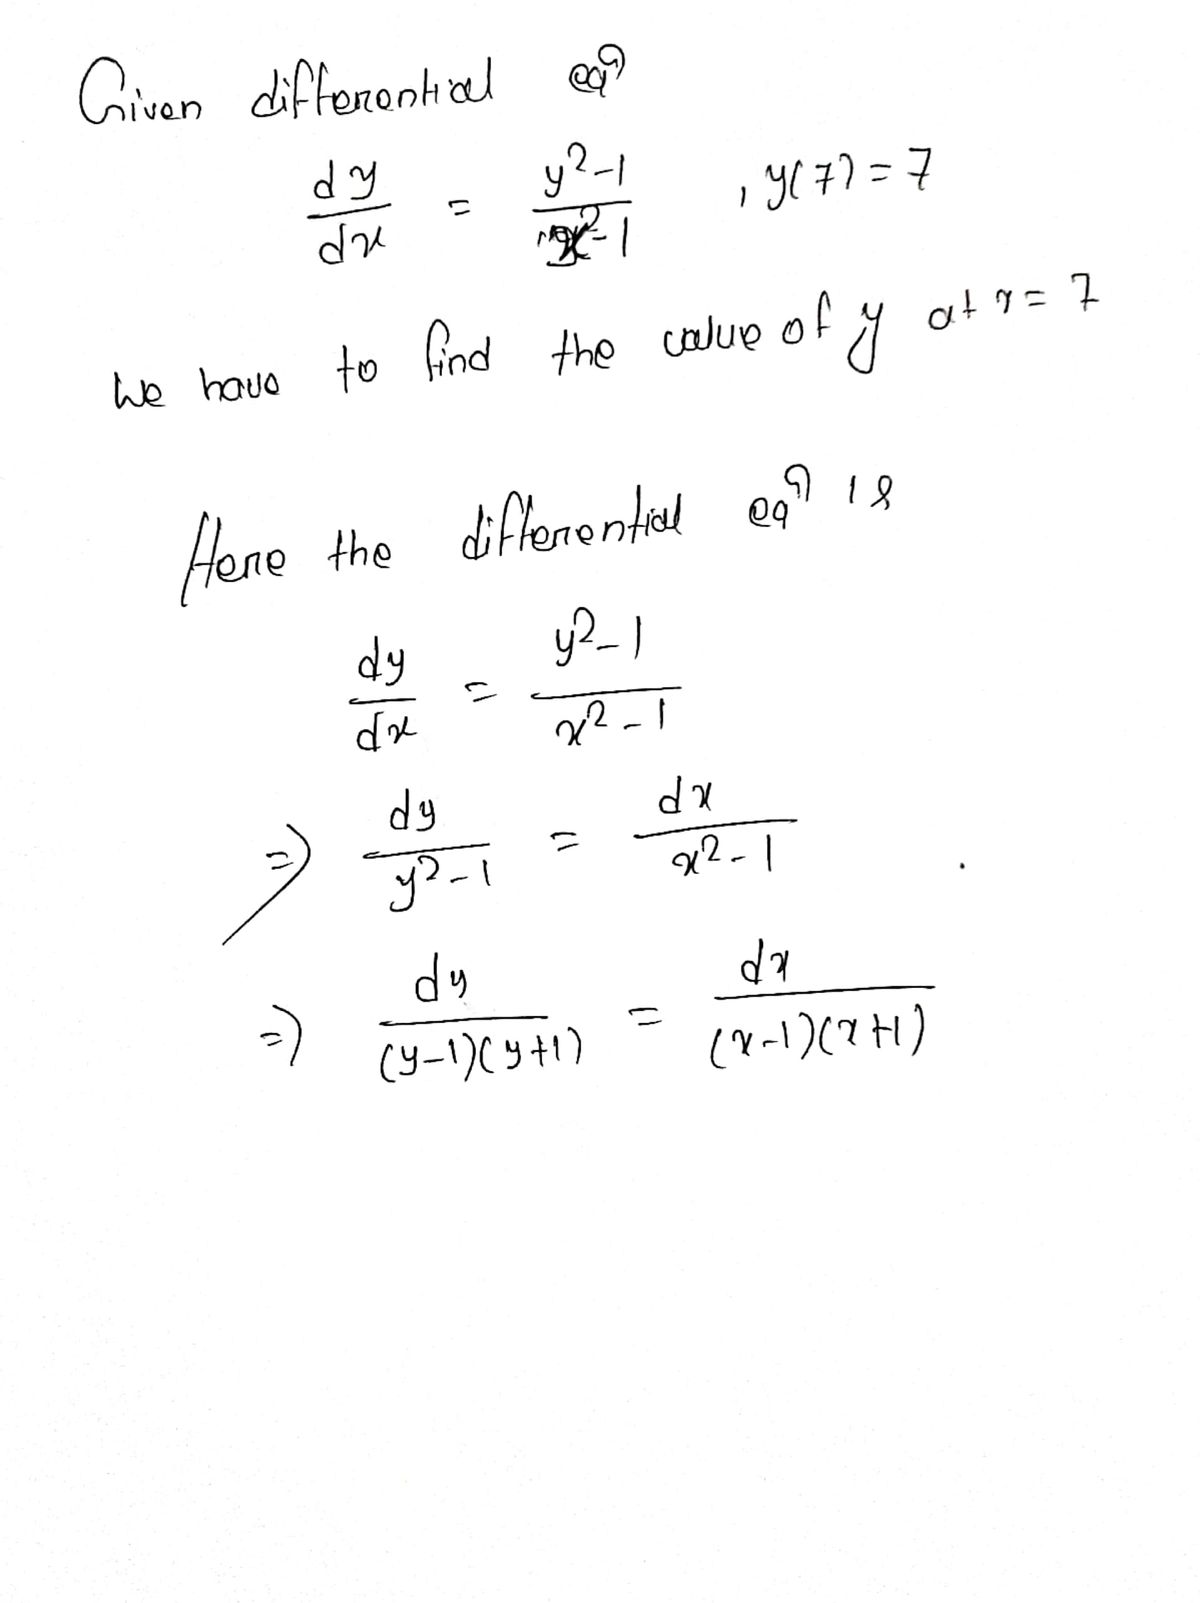 Given differential eqn
dy/dx = y²-1/x²-1 , y(7) = 7
We have to find the value of y at x = 7
Here the differential eqn is
dy/dx = y²-1/x²-1
=> dy/y²-1 = dx/x²-1
=> dy/(y-1)(y+1) = dx/(x-1)(x+1)